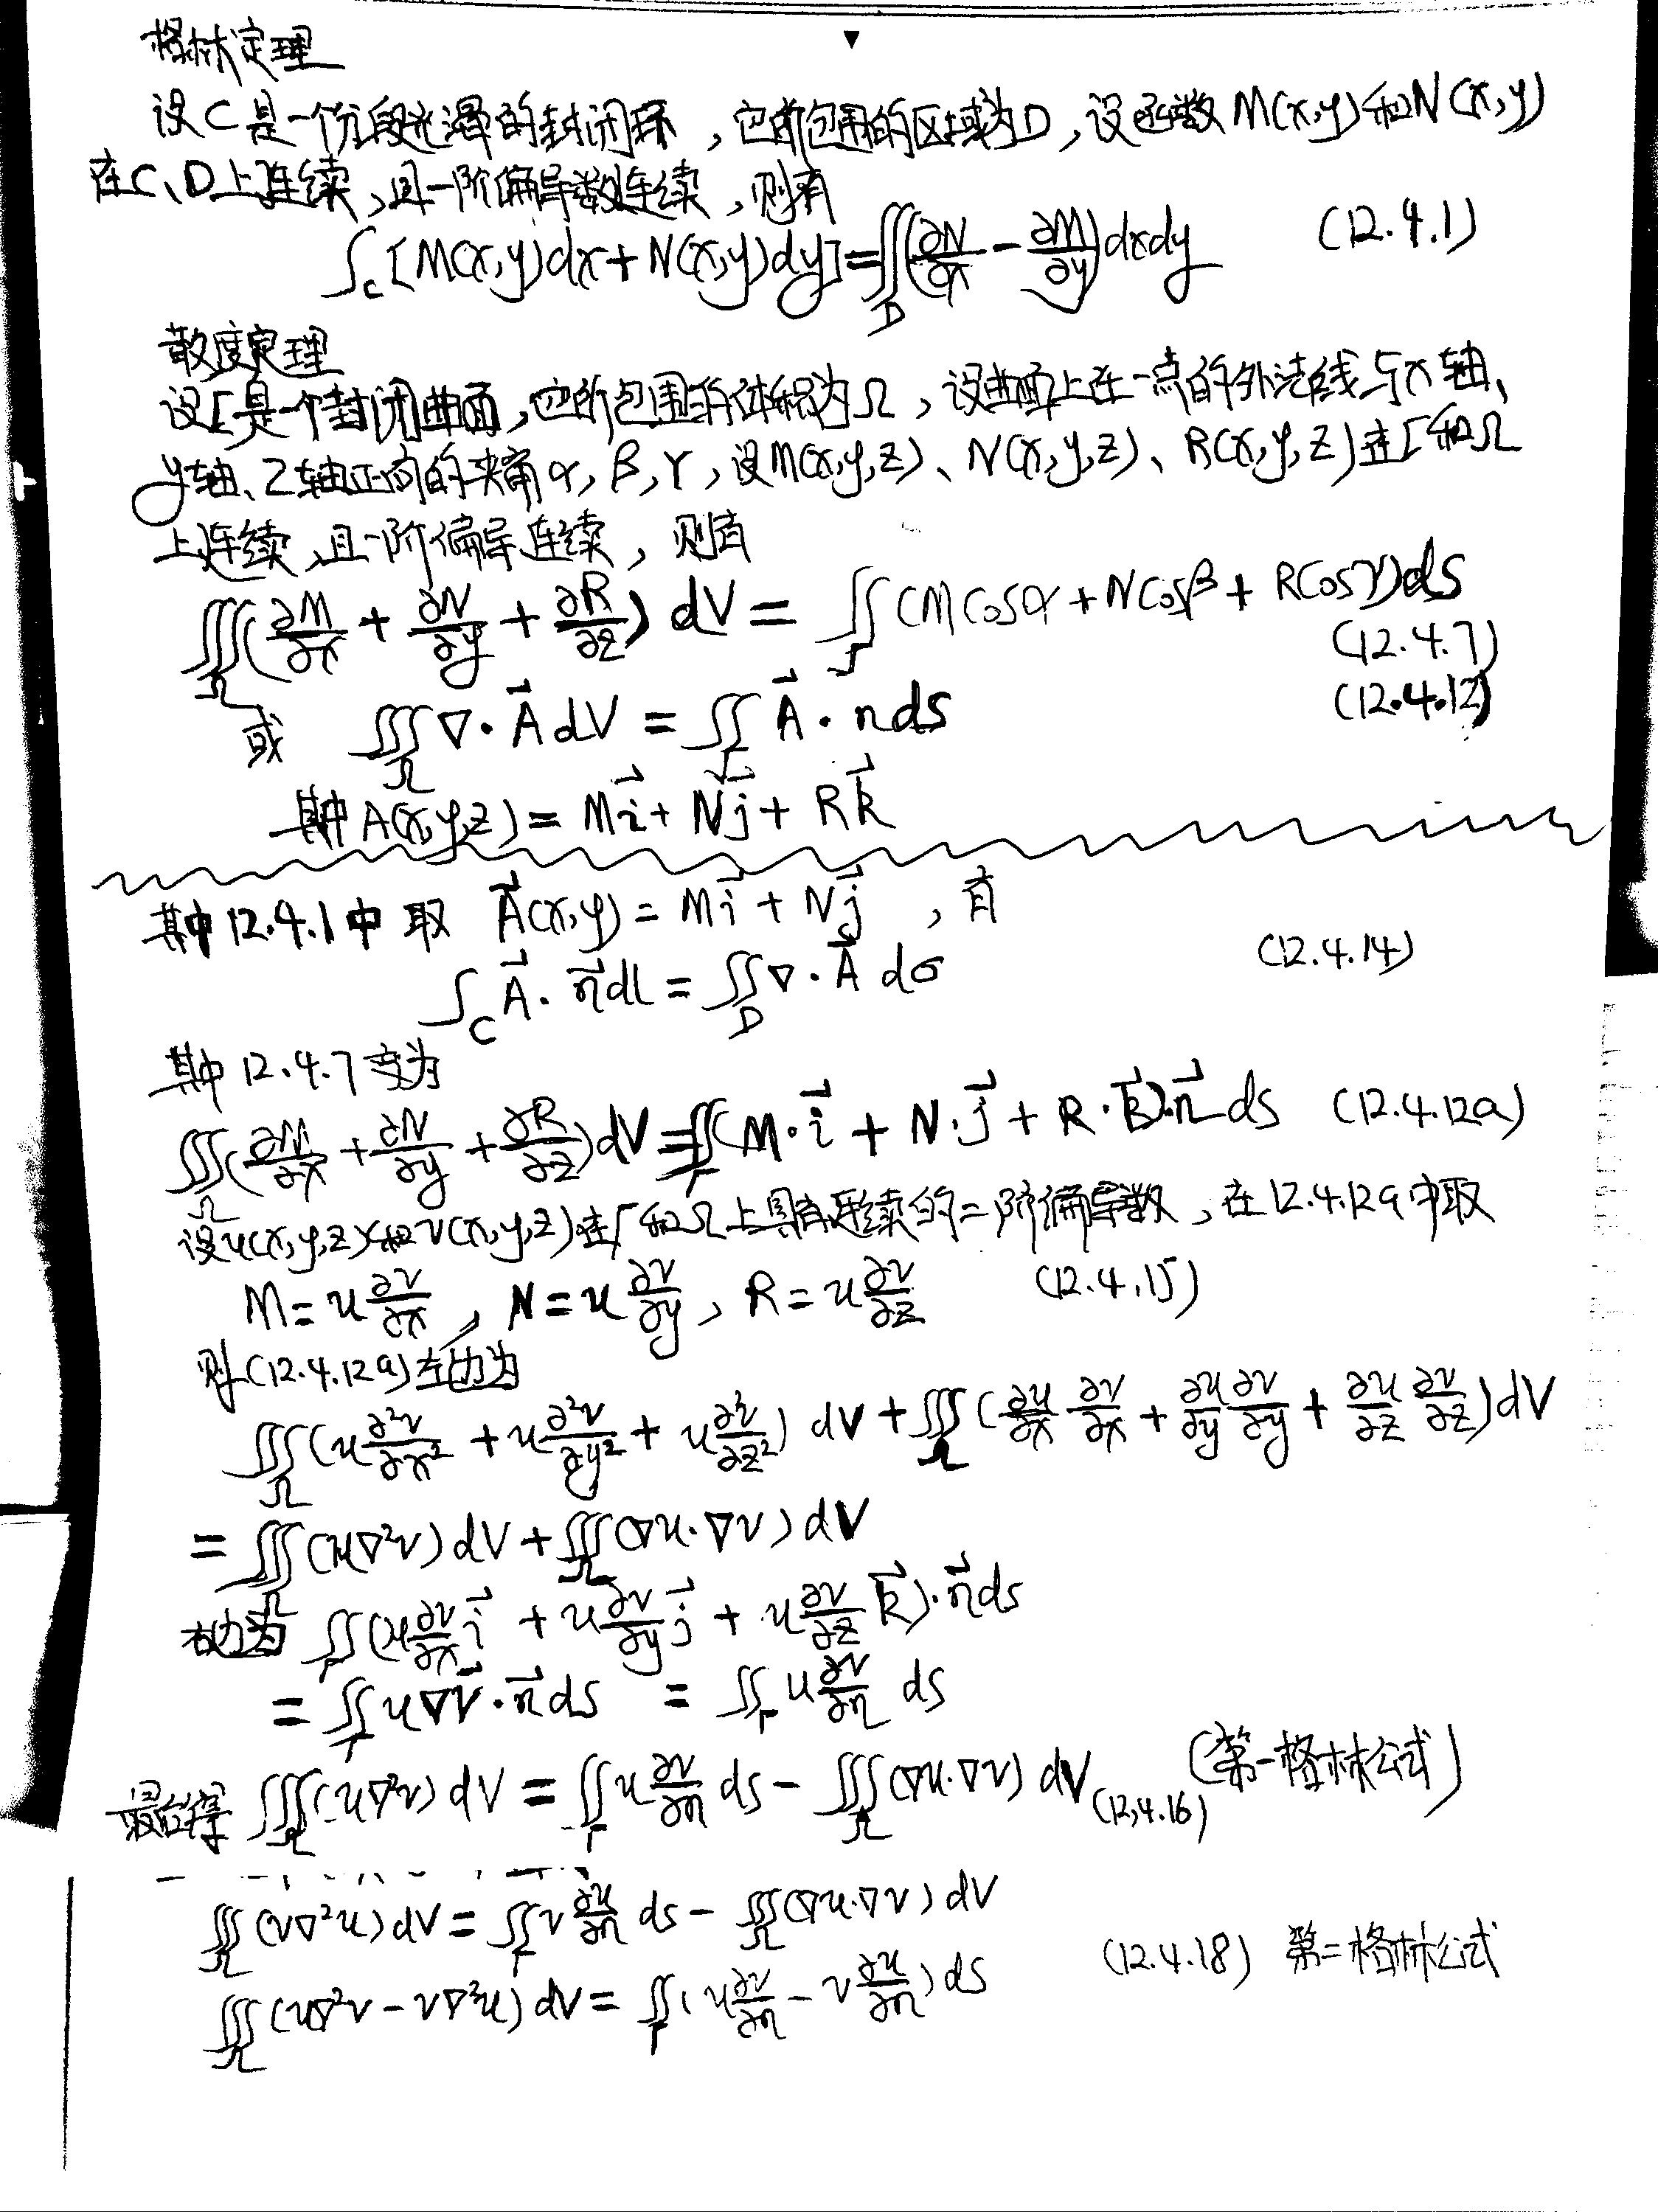 格林定理
设C是一个分段光滑的封闭环，它所包围的区域为D，设函数M(x,y)和N(x,y)
在C、D上连续，且一阶偏导数连续，则有
∫_C [M(x,y)dx+N(x,y)dy]=∬_D(∂N/∂x − ∂M/∂y)dxdy (12.4.1)
散度定理
设Γ是一个封闭曲面，它所包围的体积为Ω，设曲面上任一点的外法线与x轴、
y轴、z轴正向的夹角α，β，γ，设M(x,y,z)、N(x,y,z)、R(x,y,z)在Γ和Ω
上连续，且一阶偏导连续，则有
∭_Ω(∂M/∂x + ∂N/∂y + ∂R/∂z) dV = ∬_Γ(Mcosα + Ncosβ + Rcosγ)ds
(12.4.7)
或 ∭_Ω ∇·A⃗ dV = ∬_Γ A⃗·n ds (12.4.12)
其中 A(x,y,z) = Mi⃗ + Nj⃗ + Rk⃗
其中12.4.1中取 A⃗(x,y) = Mi⃗ + Nj⃗ ，有
∫_C A⃗·n⃗dl = ∬_D ∇·A⃗ dσ (12.4.14)
其中12.4.7变为
∭_Ω(∂M/∂x + ∂N/∂y + ∂R/∂z)dV = ∬_Γ(M·i⃗ + N·j⃗ + R·k⃗)·n⃗ ds (12.4.12a)
设u(x,y,z)和v(x,y,z)在Γ和Ω上具有连续的二阶偏导数，在12.4.12a中取
M = u ∂v/∂x ， N = u ∂v/∂y ， R = u ∂v/∂z (12.4.15)
则(12.4.12a)左边为
∭_Ω(u ∂²v/∂x² + u ∂²v/∂y² + u ∂²v/∂z²) dV + ∭_Ω(∂u/∂x ∂v/∂x + ∂u/∂y ∂v/∂y + ∂u/∂z ∂v/∂z)dV
= ∭_Ω(u∇²v)dV + ∭_Ω(∇u·∇v)dV
右边为 ∬_Γ(u ∂v/∂x i⃗ + u ∂v/∂y j⃗ + u ∂v/∂z k⃗)·n⃗ds
= ∬_Γ u∇v⃗·n⃗ds = ∬_Γ u ∂v/∂n ds
最后得 ∭_Ω(u∇²v) dV = ∬_Γ u ∂v/∂n ds − ∭_Ω(∇u·∇v) dV (12.4.16) (第一格林公式)
∭_Ω(v∇²u)dV = ∬_Γ v ∂u/∂n ds − ∭_Ω(∇u·∇v)dV
∭_Ω(u∇²v − v∇²u) dV = ∬_Γ(u ∂v/∂n − v ∂u/∂n)ds (12.4.18) 第二格林公式